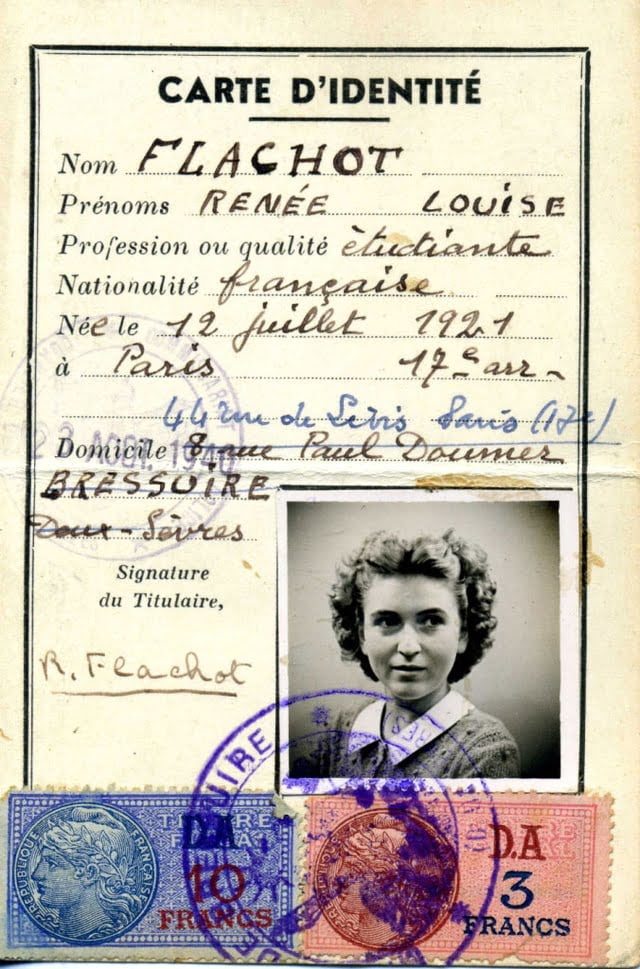 CARTE D'IDENTITÉ
Nom FLACHOT
Prénoms RENÉE LOUISE
Profession ou qualité étudiante
Nationalité française
Née le 12 juillet 1921
à Paris 17e arr
44 rue de Lévis Paris (17e)
AOUT 1940
Domicile 8 rue Paul Doumer
BRESSUIRE
Deux-Sèvres
Signature
du Titulaire,
R. Flachot
RÉPUBLIQUE FRANÇAISE
TIMBRE
FISCAL
D.A
10
FRANCS
D.A
3
FRANCS